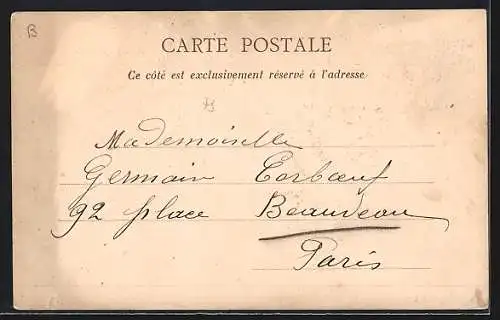 B
CARTE POSTALE
Ce côté est exclusivement réservé à l'adresse
Mademoiselle
Germain Corbœuf
92 place Beauveau
Paris